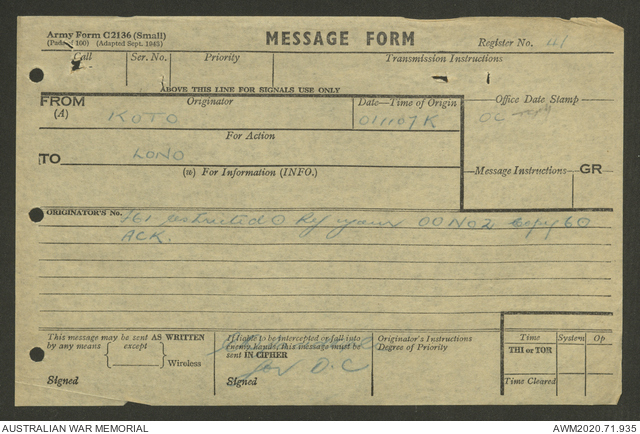 Army Form C2136 (Small)
(Pads of 100) (Adapted Sept. 1943)
MESSAGE FORM
Register No. 41
Call
Ser. No.
Priority
Transmission Instructions
ABOVE THIS LINE FOR SIGNALS USE ONLY
FROM
(A)
Originator
KOTO
Date—Time of Origin
011107K
Office Date Stamp
OC
For Action
TO
LONO
(w) For Information (INFO.)
Message Instructions
GR
ORIGINATOR'S No.
restricted O Ref your OO NO2 copy 60
ACK.
This message may be sent AS WRITTEN
by any means
except
Wireless
Signed
If liable to be intercepted or fall into
enemy hands, this message must be
sent IN CIPHER
for O.C
Signed
Originator's Instructions
Degree of Priority
Time
System
Op
THI or TOR
Time Cleared
AUSTRALIAN WAR MEMORIAL
AWM2020.71.935